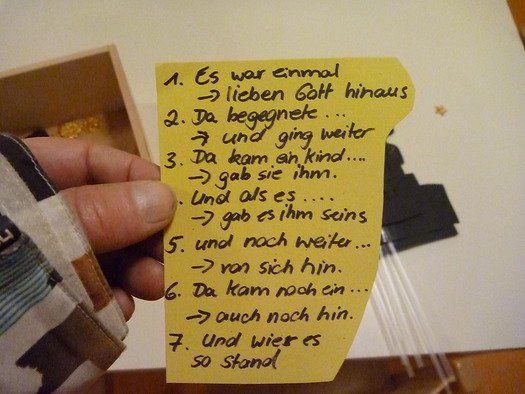 1. Es war einmal
→ lieben Gott hinaus
2. Da begegnete ...
→ und ging weiter
3. Da kam ein kind....
→ gab sie ihm.
. Und als es ....
→ gab es ihm seins
5. und noch weiter...
→ von sich hin.
6. Da kam noch ein...
→ auch noch hin.
7. Und wier es
so stand